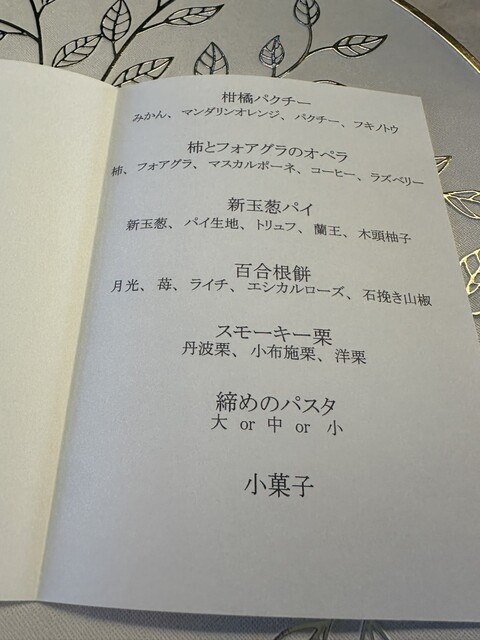 柑橘パクチー
みかん、マンダリンオレンジ、パクチー、フキノトウ
柿とフォアグラのオペラ
柿、フォアグラ、マスカルポーネ、コーヒー、ラズベリー
新玉葱パイ
新玉葱、パイ生地、トリュフ、蘭王、木頭柚子
百合根餅
月光、苺、ライチ、エシカルローズ、石挽き山椒
スモーキー栗
丹波栗、小布施栗、洋栗
締めのパスタ
大 or 中 or 小
小菓子